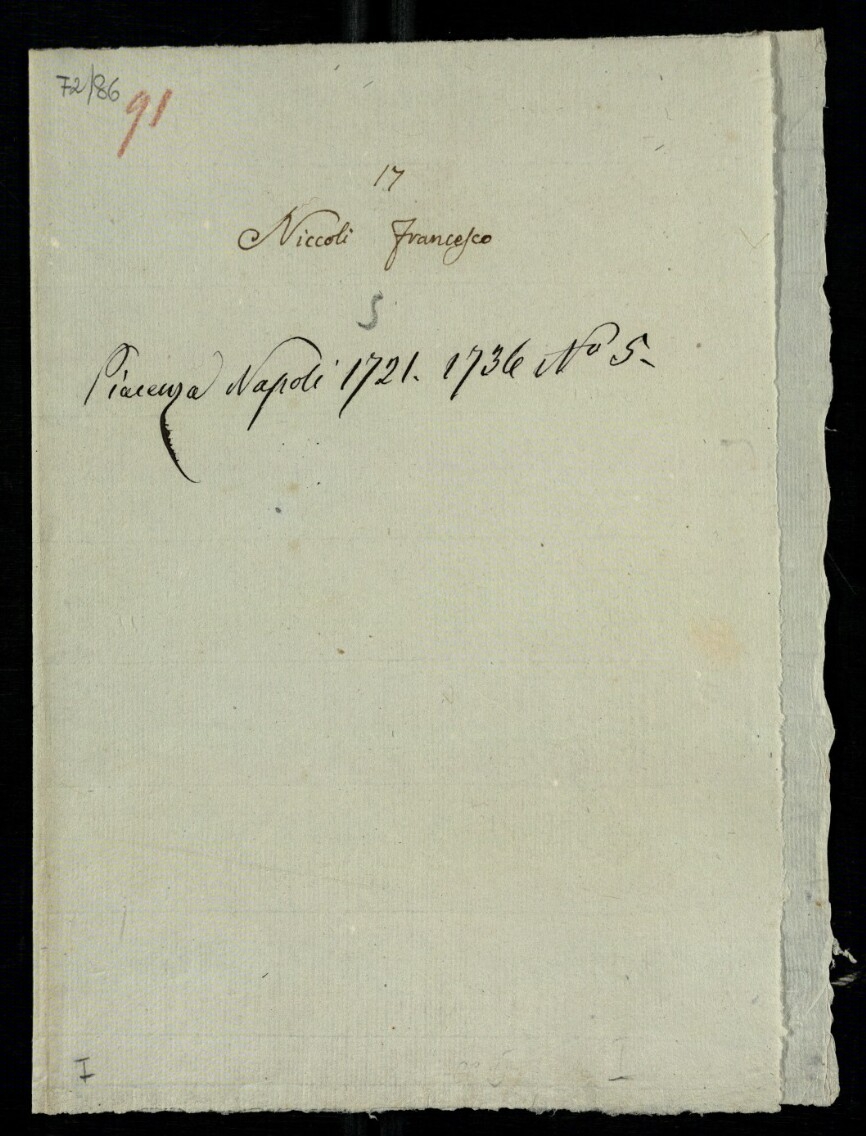 72/86
91
17
Niccoli Francesco
5
Piacenza Napoli 1721. 1736 No 5.
I